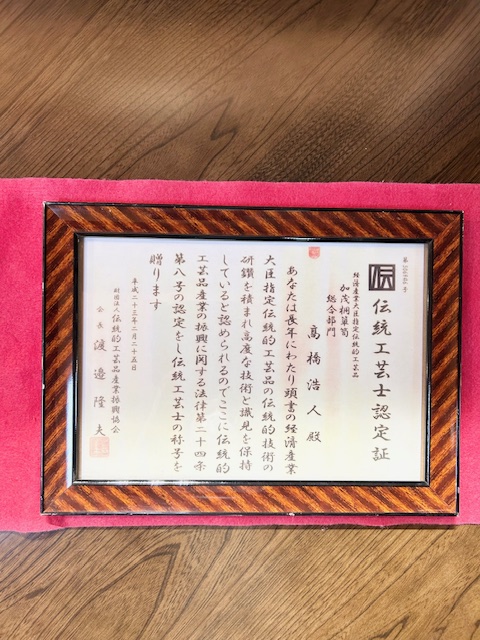 伝統工芸士認定証
経済産業大臣指定伝統的工芸品
加茂桐簞笥
総合部門
高橋浩人殿
あなたは長年にわたり頭書の経済産業
大臣指定伝統的工芸品の伝統的技術の
研鑽を積まれ高度な技術と識見を保持
していると認められるのでここに伝統的
工芸品産業の振興に関する法律第二十四条
第八号の認定をし伝統工芸士の称号を
贈ります
平成二十三年二月二十五日
財団法人伝統的工芸品産業振興協会
会長 渡邉隆夫